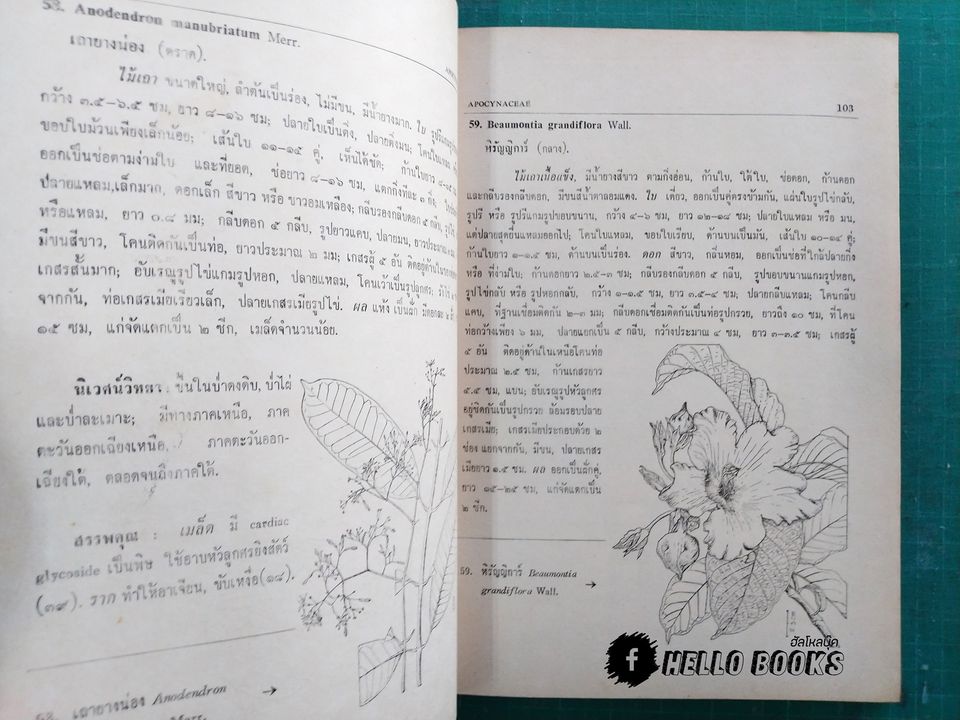 58. Anodendron manubriatum Merr.
เถายางน่อง (ตราด).
ไม้เถา ขนาดใหญ่, ลำต้นเป็นร่อง, ไม่มีขน, มีน้ำยางมาก. ใบ รูปรีแกมรูป
กว้าง ๓.๕–๖.๕ ซม, ยาว ๘–๑๖ ซม; ปลายใบเป็นติ่ง, ปลายติ่งมน; โคนใบแหลม
ขอบใบม้วนเพียงเล็กน้อย; เส้นใบ ๑๑–๑๕ คู่, เห็นได้ชัด; ก้านใบยาว
ออกเป็นช่อตามง่ามใบ และที่ยอด, ช่อยาว ๘–๑๖ ซม, แตกกิ่งทีละ ๓ กิ่ง;
ปลายแหลม,เล็กมาก, ดอกเล็ก สีขาว หรือ ขาวอมเหลือง; กลีบรองกลีบดอก ๕ กลีบ,
หรือแหลม, ยาว ๓.๘ มม; กลีบดอก ๕ กลีบ, รูปยาวแคบ, ปลายมน, ยาวประมาณ
มีขนสีขาว, โคนติดกันเป็นท่อ, ยาวประมาณ ๒ มม; เกสรผู้ ๕ อัน ติดอยู่ด้านใน
เกสรสั้นมาก; อับเรณูรูปไข่แกมรูปหอก, ปลายแหลม, โคนเว้าเป็นรูปลูกศร;
จากกัน, ท่อเกสรเมียเรียวเล็ก, ปลายเกสรเมียรูปไข่. ผล แห้ง เป็นฝัก มีดอกละ ๒
๑๕ ซม, แก่จัดแตกเป็น ๒ ซีก, เมล็ดจำนวนน้อย.
นิเวศน์วิทยา: ขึ้นในป่าดงดิบ, ป่าไผ่
และป่าละเมาะ; มีทางภาคเหนือ, ภาค
ตะวันออกเฉียงเหนือ, ภาคตะวันออก-
เฉียงใต้, ตลอดจนถึงภาคใต้.
สรรพคุณ : เมล็ด มี cardiac
glycoside เป็นพิษ ใช้อาบหัวลูกศรยิงสัตว์
(๓๙). ราก ทำให้อาเจียน, ขับเหงื่อ(๑๘).
58. เถายางน่อง Anodendron →
Merr.
APOCYNACEAE 103
59. Beaumontia grandiflora Wall.
หิรัญญิการ์ (กลาง).
ไม้เถาเนื้อแข็ง, มีน้ำยางสีขาว ตามกิ่งอ่อน, ก้านใบ, ใต้ใบ, ช่อดอก, ก้านดอก
และกลีบรองกลีบดอก, มีขนสีน้ำตาลอมแดง. ใบ เดี่ยว, ออกเป็นคู่ตรงข้ามกัน, แผ่นใบรูปไข่กลับ,
รูปรี หรือ รูปรีแกมรูปขอบขนาน, กว้าง ๔–๖ ซม, ยาว ๑๒–๑๘ ซม; ปลายใบแหลม หรือ มน,
แต่ปลายสุดยื่นแหลมออกไป; โคนใบแหลม, ขอบใบเรียบ, ด้านบนเป็นมัน, เส้นใบ ๑๐–๑๔ คู่;
ก้านใบยาว ๑–๑.๕ ซม, ด้านบนเป็นร่อง. ดอก สีขาว, กลิ่นหอม, ออกเป็นช่อที่ใกล้ปลายกิ่ง
หรือ ที่ง่ามใบ; ก้านดอกยาว ๒.๕–๓ ซม; กลีบรองกลีบดอก ๕ กลีบ, รูปขอบขนานแกมรูปหอก,
รูปไข่กลับ หรือ รูปหอกกลับ, กว้าง ๑–๑.๕ ซม, ยาว ๓.๕–๔ ซม; ปลายกลีบแหลม; โคนกลีบ
แคบ, ที่ฐานเชื่อมติดกัน ๒–๓ มม; กลีบดอกเชื่อมติดกันเป็นท่อรูปกรวย, ยาวถึง ๑๐ ซม, ที่โคน
ท่อกว้างเพียง ๖ มม, ปลายแยกเป็น ๕ กลีบ, กว้างประมาณ ๔ ซม, ยาว ๓–๓.๕ ซม; เกสรผู้
๕ อัน ติดอยู่ด้านในเหนือโคนท่อ
ประมาณ ๒.๕ ซม, ก้านเกสรยาว
๕.๕ ซม, แบน; อับเรณูรูปหัวลูกศร
อยู่ชิดกันเป็นรูปกรวย ล้อมรอบปลาย
เกสรเมีย; เกสรเมียประกอบด้วย ๒
ช่อง แยกจากกัน, มีขน, ปลายเกสร
เมียยาว ๑.๕ ซม. ผล ออกเป็นฝักคู่,
ยาว ๑๕–๒๕ ซม, แก่จัดแตกเป็น
๒ ซีก.
59. หิรัญญิการ์ Beaumontia →
grandiflora Wall.
ฮัลโหลบุ๊ค
f HELLO BOOKS